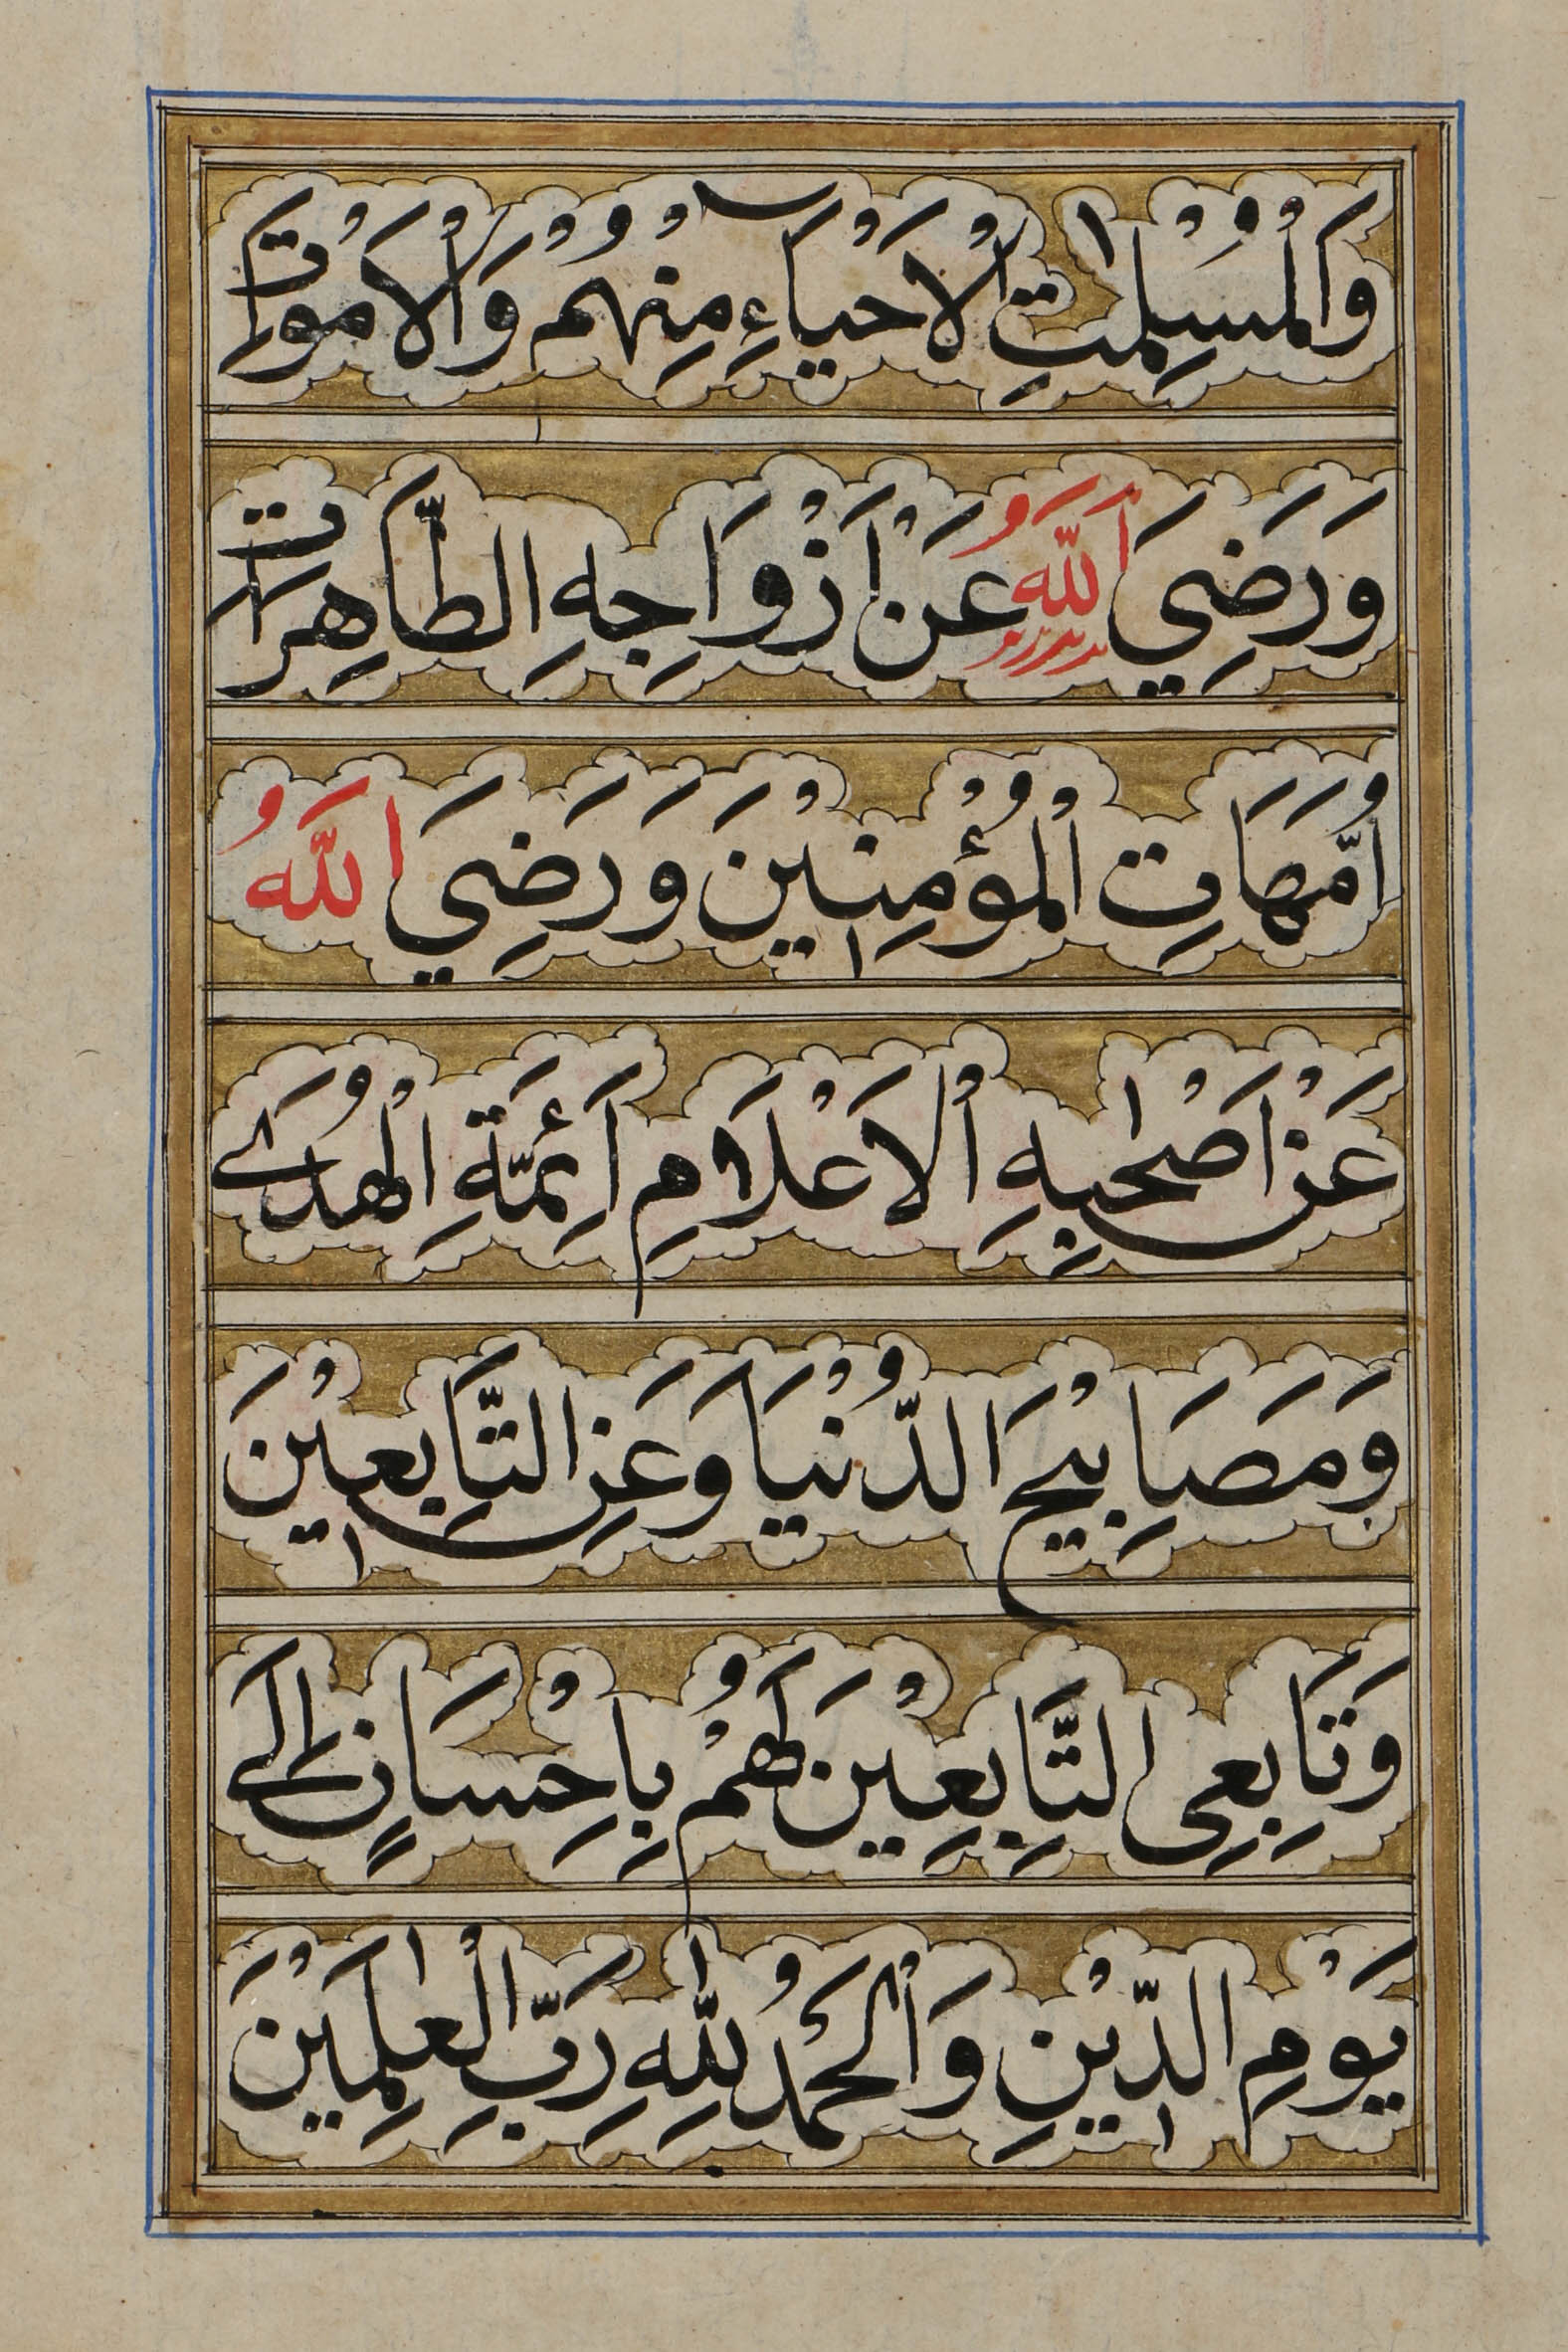 وَالْمُسْلِمٰتِ الْاَحْيَآءِ مِنْهُمْ وَالْاَمْوَاتِ
وَرَضِيَ اللّٰهُ عَنْ اَزْوَاجِهِ الطَّاهِرَاتِ
اُمَّهَاتِ الْمُؤْمِنِيْنَ وَرَضِيَ اللّٰهُ
عَنْ اَصْحٰبِهِ الْاَعْلَامِ اَئِمَّةِ الْهُدٰى
وَمَصَابِيْحِ الدُّنْيَا وَعَنِ التَّابِعِيْنَ
وَتَابِعِى التَّابِعِيْنَ لَهُمْ بِاِحْسَانٍ اِلَى
يَوْمِ الدِّيْنِ وَالْحَمْدُ لِلّٰهِ رَبِّ الْعٰلَمِيْنَ